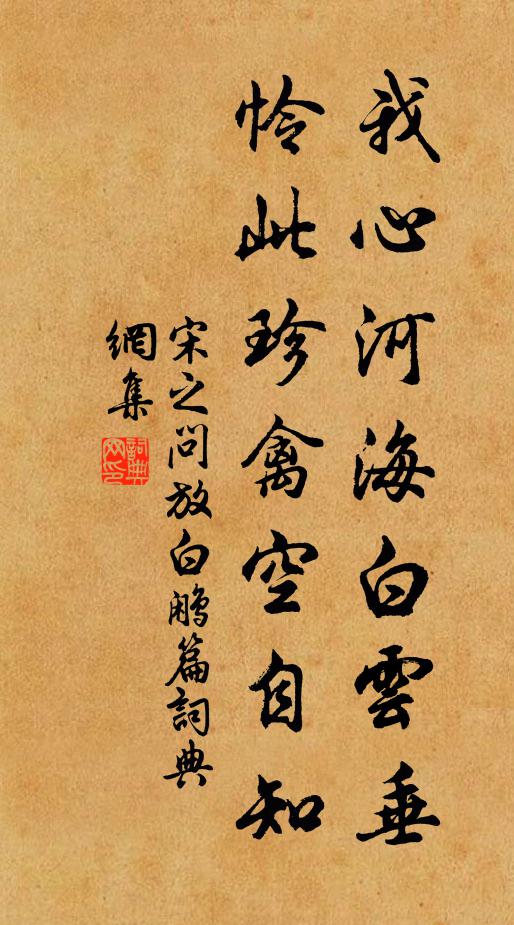 我心河海白雲垂
怜此珍禽空自知
宋之问放白鹇篇詞典
網集
詞典网印